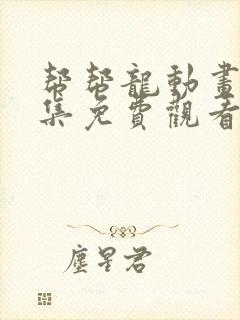 帮帮龍動畫
集免費觀看
塵星君